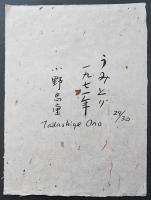 うみどり
一九七一年
小野忠重
Tadashige Ono
24/30